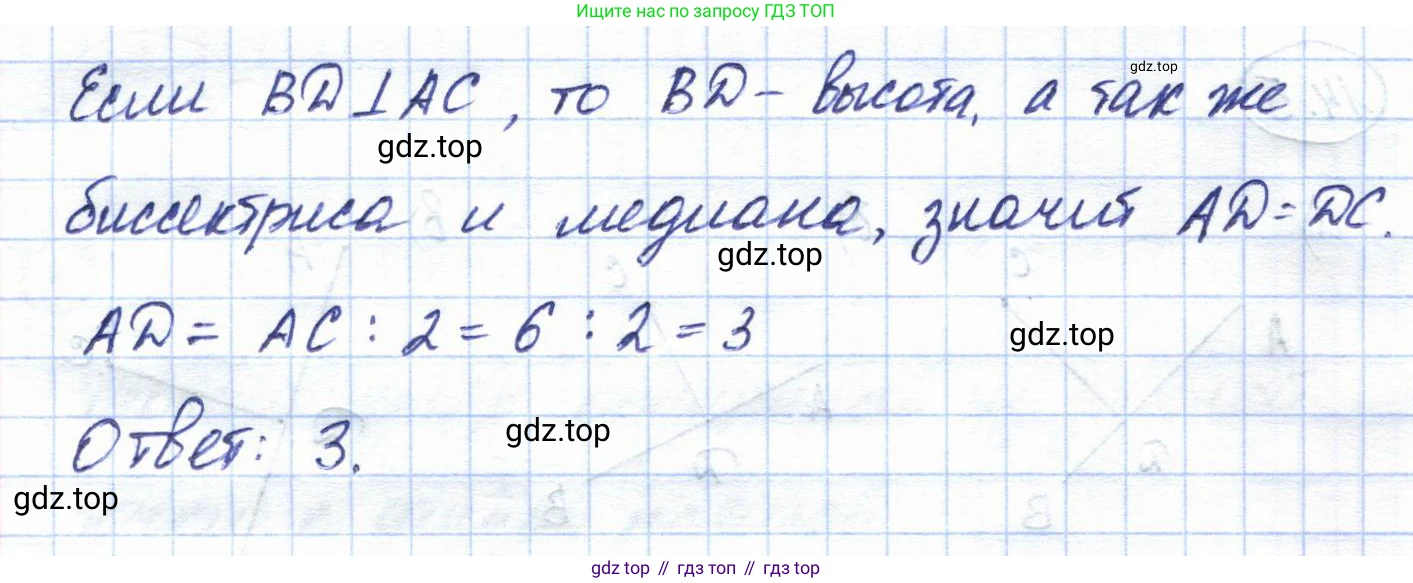 Ищите нас по запросу ГДЗ ТОП
gdz.top
Если BD⊥AC, то BD – высота, а так же
gdz.top
биссектриса и медиана, значит AD=DC.
gdz.top
AD = AC : 2 = 6 : 2 = 3
gdz.top
Ответ: 3.
gdz.top
gdz.top
gdz top // гдз топ // гдз top